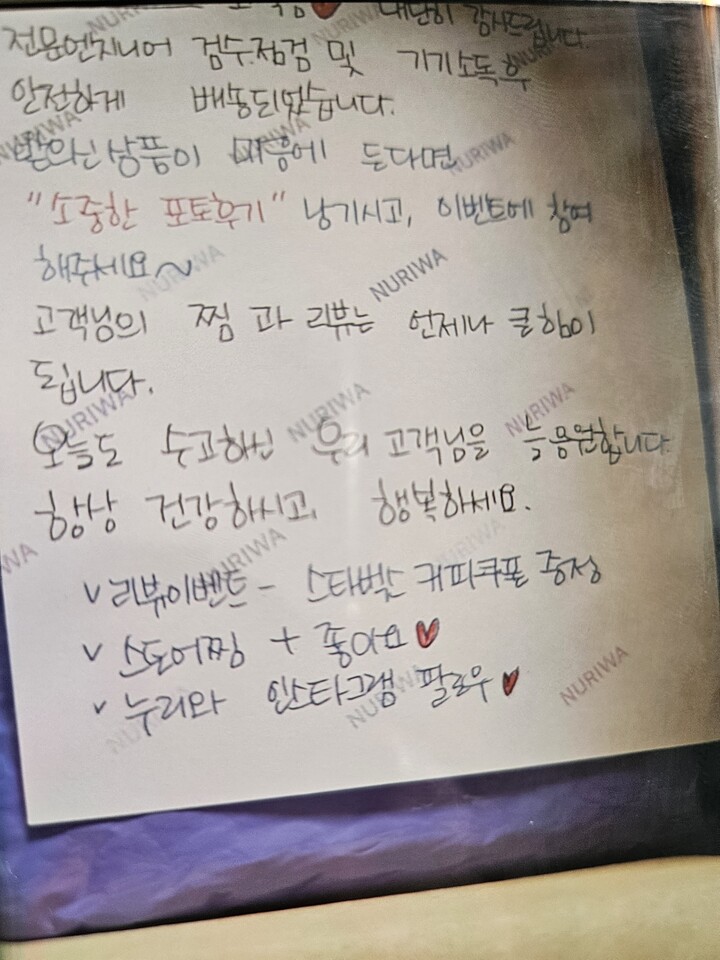 대단히 감사드립니다.
전문엔지니어 검수.점검 및 기기소독후
안전하게 배송되었습니다.
받으신상품이 마음에 든다면
"소중한 포토후기" 남기시고, 이벤트에 참여
해주세요~
고객님의 찜 과 리뷰는 언제나 큰힘이
됩니다.
오늘도 수고하신 우리 고객님을 늘 응원합니다.
항상 건강하시고, 행복하세요.
v 리뷰이벤트 - 스타벅스 커피쿠폰 증정
v 스토어찜 + 좋아요♥
v 누리와 인스타그램 팔로우♥
NURIWA